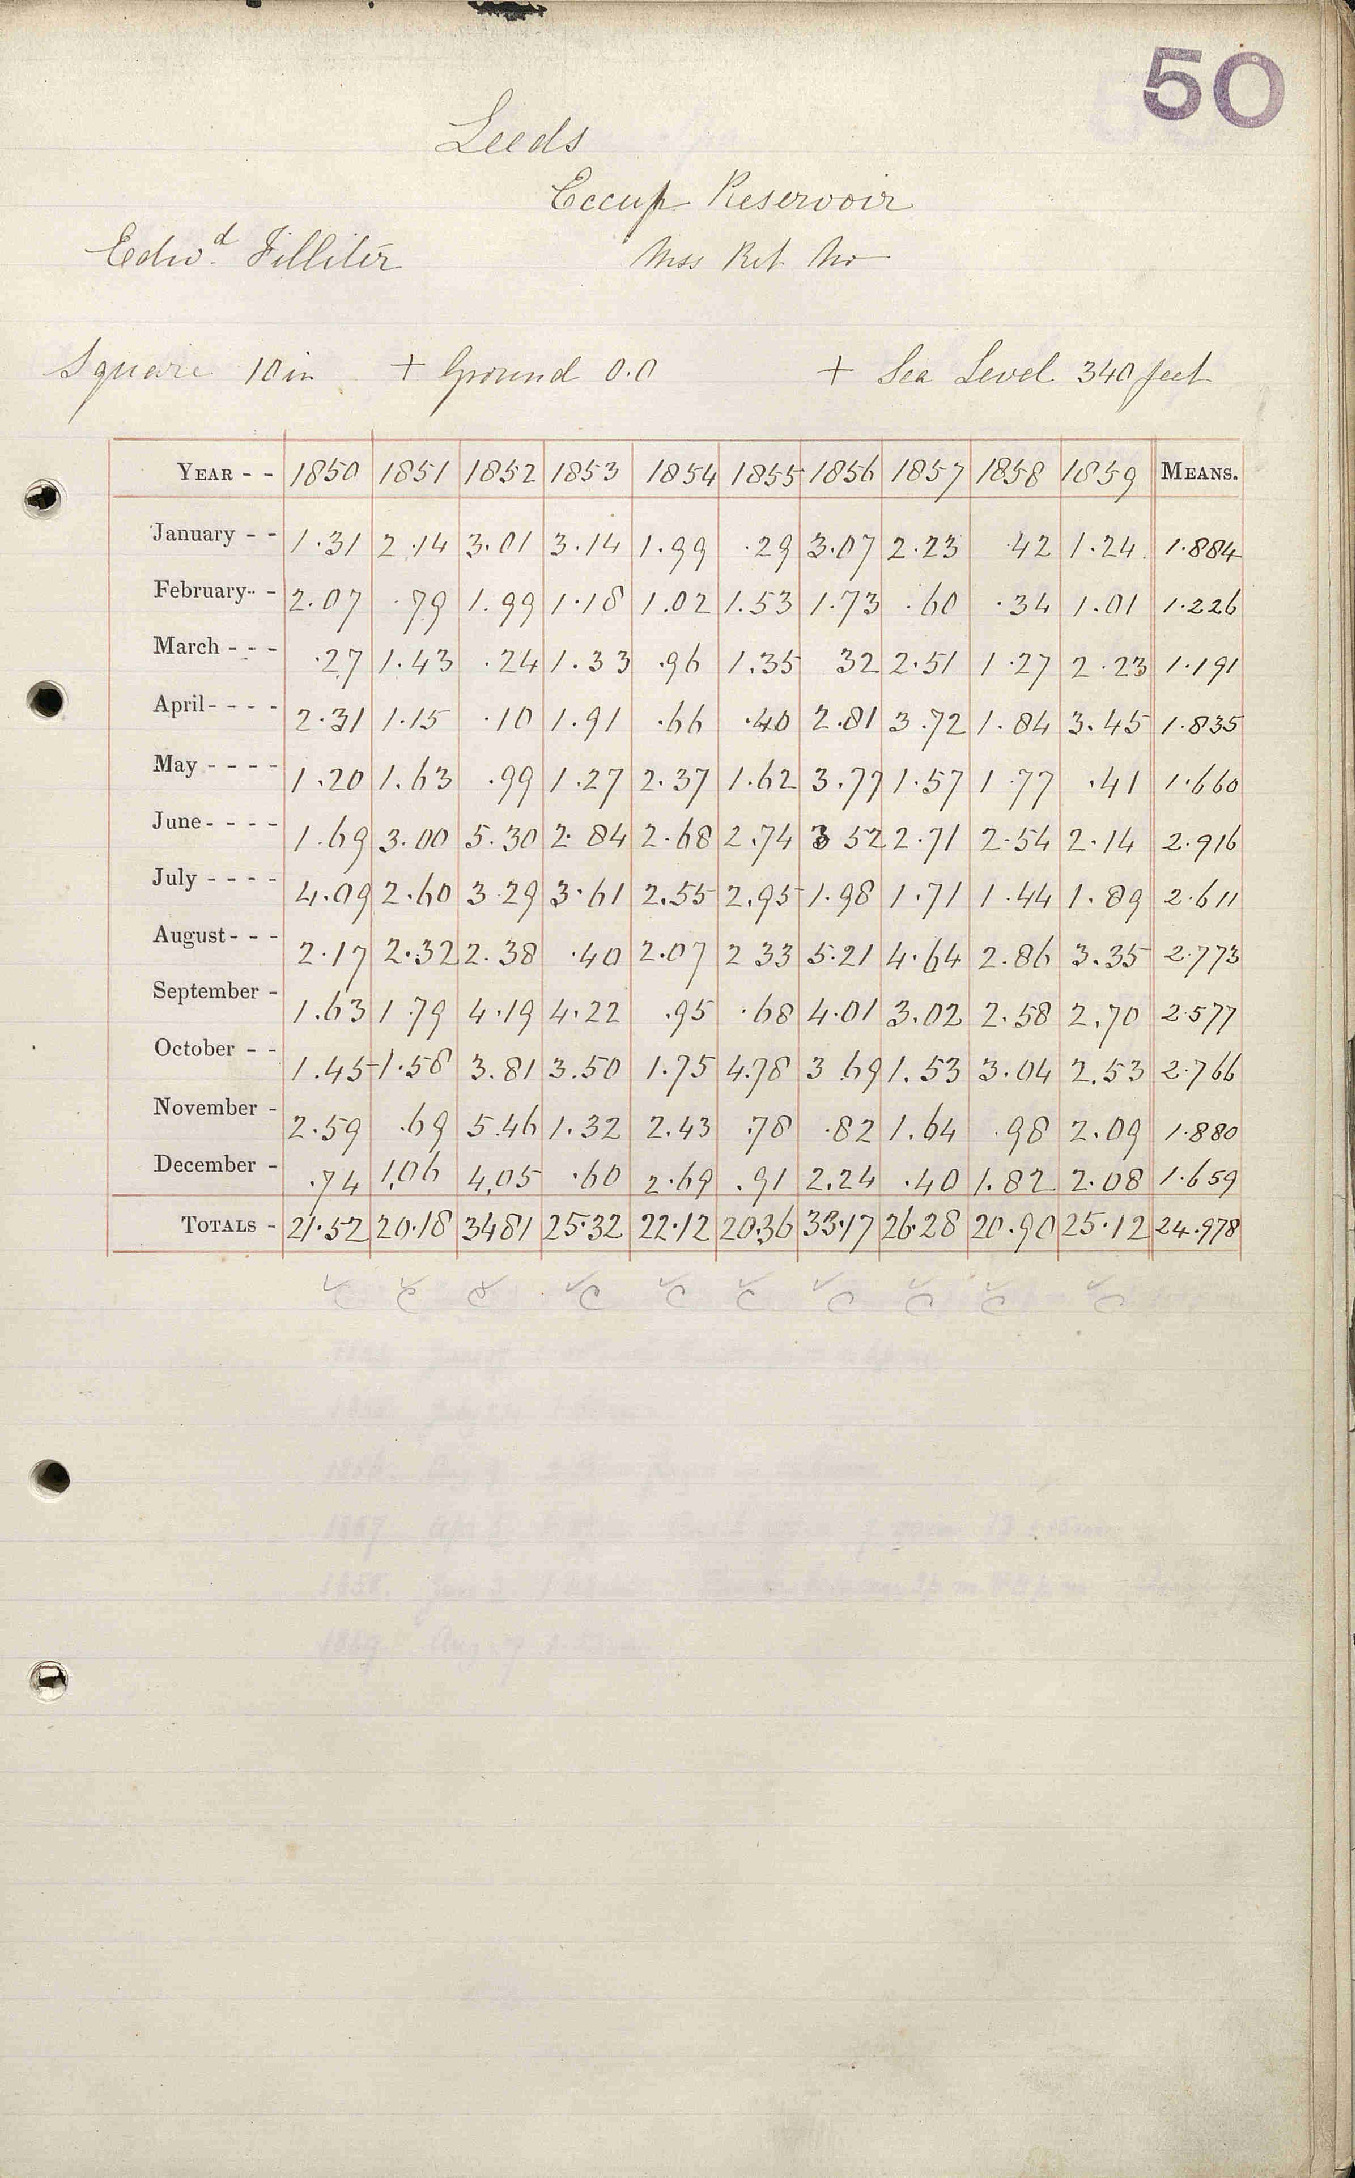 50
Leeds
Eccup Reservoir
Edwd. Filliter Mss Ret
Square 10in + Ground 0.0 + Sea Level 340 feet
YEAR - - 1850 1851 1852 1853 1854 1855 1856 1857 1858 1859 MEANS.
January - - 1.31 2.14 3.01 3.14 1.99 .29 3.07 2.23 .42 1.24 1.884
February - - 2.07 .79 1.99 1.18 1.02 1.53 1.73 .60 .34 1.01 1.226
March - - - .27 1.43 .24 1.33 .96 1.35 32 2.51 1.27 2.23 1.191
April - - - - 2.31 1.15 .10 1.91 .66 .40 2.81 3.72 1.84 3.45 1.835
May - - - - 1.20 1.63 .99 1.27 2.37 1.62 3.77 1.57 1.77 .41 1.660
June - - - - 1.69 3.00 5.30 2.84 2.68 2.74 3 52 2.71 2.54 2.14 2.916
July - - - - 4.09 2.60 3.29 3.61 2.55 2.95 1.98 1.71 1.44 1.89 2.611
August - - - 2.17 2.32 2.38 .40 2.07 2 33 5.21 4.64 2.86 3.35 2.773
September - 1.63 1.79 4.19 4.22 .95 .68 4.01 3.02 2.58 2.70 2.577
October - - 1.45 1.58 3.81 3.50 1.75 4.78 3.69 1.53 3.04 2.53 2.766
November - 2.59 .69 5.46 1.32 2.43 .78 .82 1.64 .98 2.09 1.880
December - .74 1.06 4.05 .60 2.69 .91 2.24 .40 1.82 2.08 1.659
TOTALS - 21.52 20.18 3481 25.32 22.12 20.36 33.17 26.28 20.90 25.12 24.978